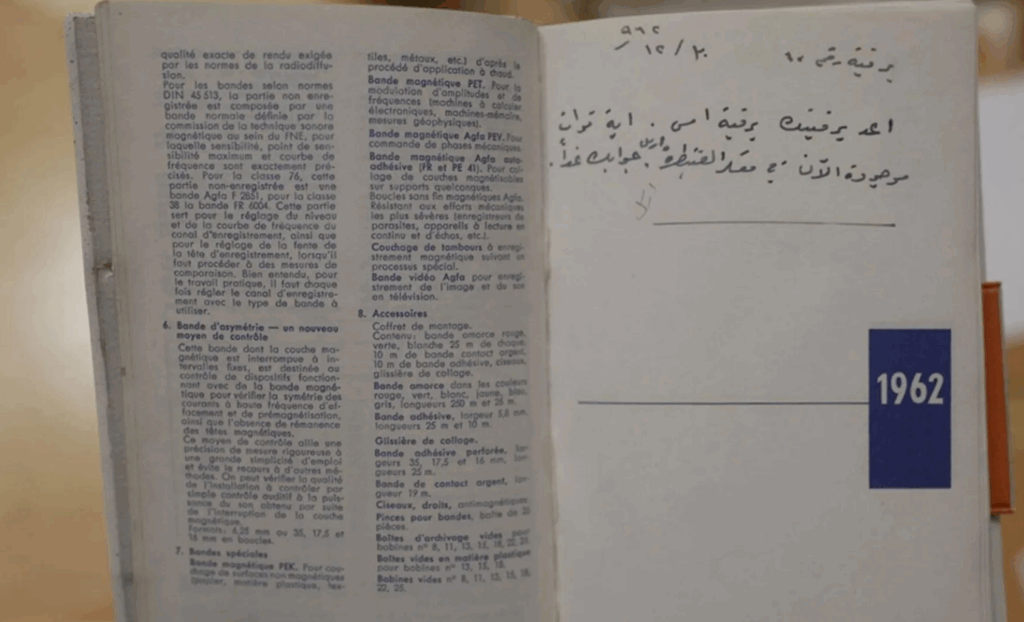 qualité exacte de rendu exigée
par les normes de la radiodiffu-
sion.
Pour les bandes selon normes
DIN 45 513, la partie non enre-
gistrée est composée par une
bande normale définie par la
commission de la technique sonore
magnétique au sein du FNE, pour
laquelle sensibilité, point de sen-
sibilité maximum et courbe de
fréquence sont exactement pré-
cisés. Pour la classe 76, cette
partie non-enregistrée est une
bande Agfa F 2651, pour la classe
38 la bande FR 6004. Cette partie
sert pour le réglage du niveau
et de la courbe de fréquence du
canal d'enregistrement, ainsi que
pour le réglage de la fente de
la tête d'enregistrement, lorsqu'il
faut procéder à des mesures de
comparaison. Bien entendu, pour
le travail pratique, il faut chaque
fois régler le canal d'enregistre-
ment avec le type de bande à
utiliser.
6. Bande d'asymétrie — un nouveau
moyen de contrôle
Cette bande dont la couche ma-
gnétique est interrompue à in-
tervalles fixes, est destinée au
contrôle de dispositifs fonction-
nant avec de la bande magné-
tique pour vérifier la symétrie des
courants à haute fréquence d'ef-
facement et de prémagnétisation,
ainsi que l'absence de rémanence
des têtes magnétiques.
Ce moyen de contrôle allie une
précision de mesure rigoureuse à
une grande simplicité d'emploi
et évite le recours à d'autres mé-
thodes. On peut vérifier la qualité
de l'installation à contrôler par
simple contrôle auditif à la puis-
sance du son obtenu par suite
de l'interruption de la couche
magnétique.
Formats: 6,25 mm ou 35, 17,5 et
16 mm en boucles.
7. Bandes spéciales
Bande magnétique PEK. Pour cou-
chage de surfaces non magnétiques
(papier, matière plastique, tex-
tiles, métaux, etc.) d'après le
procédé d'application à chaud.
Bande magnétique PET. Pour la
modulation d'amplitudes et de
fréquences (machines à calculer
électroniques, machines-mémoire,
mesures géophysiques).
Bande magnétique Agfa PEV. Pour
commande de phases mécaniques.
Bande magnétique Agfa auto-
adhésive (FR et PE 41). Pour col-
lage de couches magnétisables
sur supports quelconques.
Boucles sans fin magnétiques Agfa.
Résistant aux efforts mécaniques
les plus sévères (enregistreurs de
parasites, appareils à lecture en
continu et d'échos, etc.).
Couchage de tambours à enregi-
strement magnétique suivant un
processus spécial.
Bande vidéo Agfa pour enregi-
strement de l'image et du son
en télévision.
8. Accessoires
Coffret de montage.
Contenu: bande amorce rouge,
verte, blanche 25 m de chaque,
10 m de bande contact argent,
10 m de bande adhésive, ciseaux,
glissière de collage.
Bande amorce dans les couleurs
rouge, vert, blanc, jaune, bleu,
gris, longueurs 250 m et 25 m.
Bande adhésive, largeur 5,8 mm,
longueurs 25 m et 10 m.
Glissière de collage.
Bande adhésive perforée, lar-
geurs 35, 17,5 et 16 mm, lon-
gueurs 25 m.
Bande de contact argent, lon-
gueur 19 m.
Ciseaux, droits, antimagnétiques.
Pinces pour bandes, boîte de 25
pièces.
Boîtes d'archivage vides pour
bobines n° 8, 11, 13, 15, 18, 22, 25.
Boîtes vides en matière plastique
pour bobines n° 13, 15, 18.
Bobines vides n° 8, 11, 13, 15, 18,
22, 25.
برقية رقم ٦٠ ٣٠ / ١٢ / ٩٦٢
اعد برقيتك برقية امس . اية قوات
موجودة الآن في معسكر القنيطرة . ارسل جوابك غداً .
1962